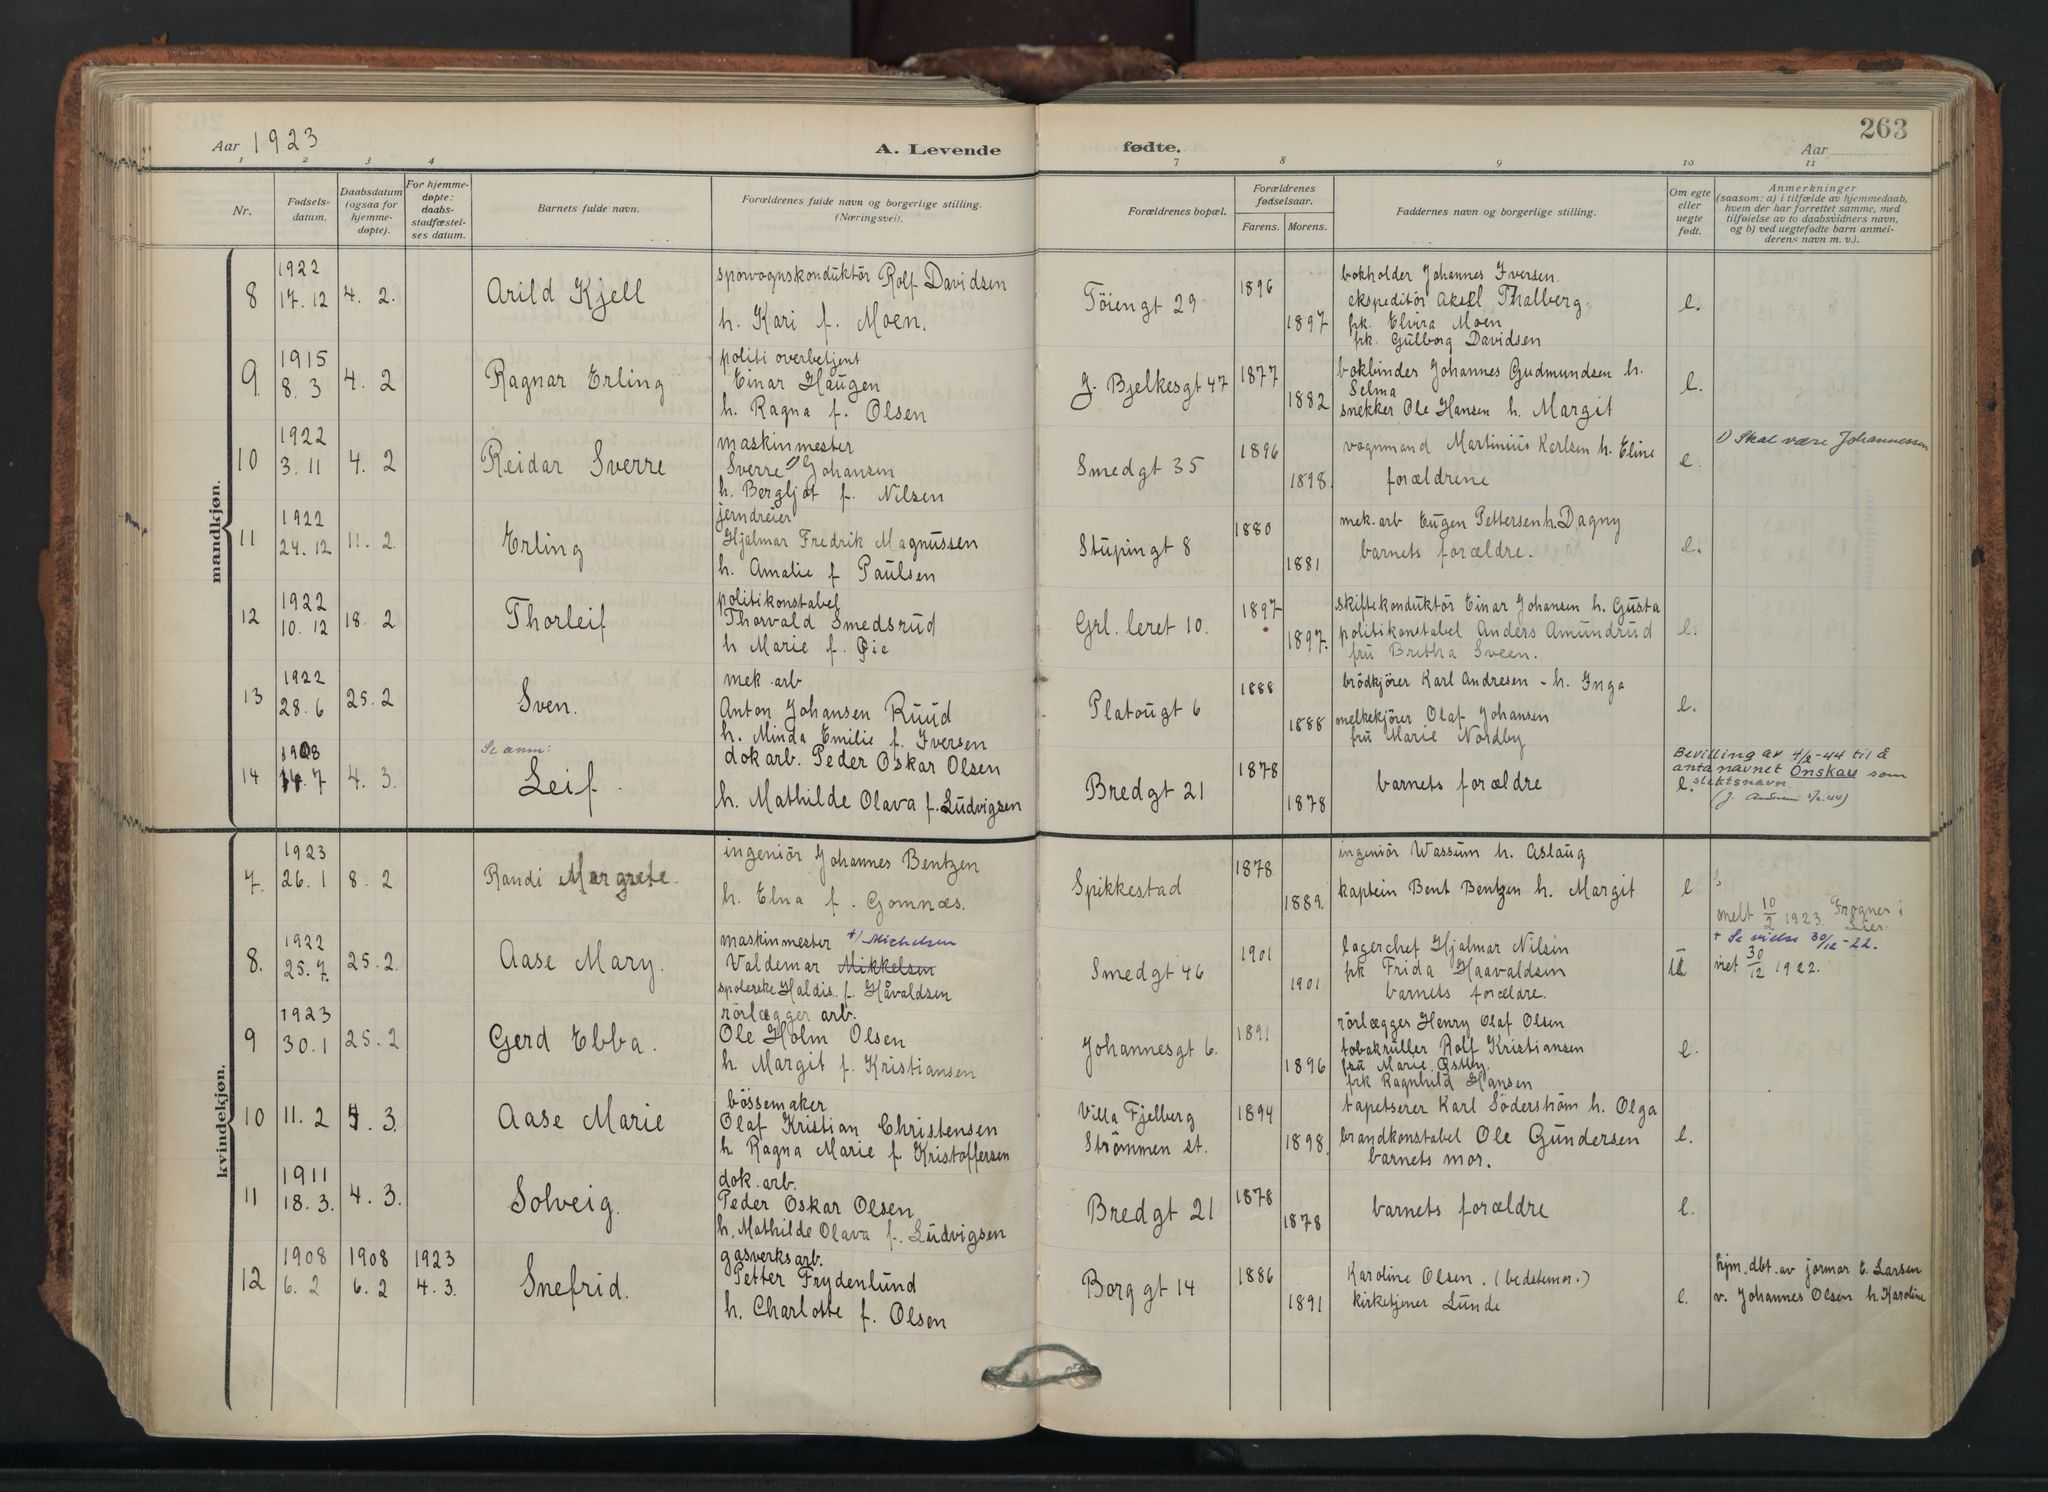 Aar 1923
A. Levende
fødte.
263
Aar
1 2 3 4 7 8 9 10 11
Nr.
Fødselsdatum.
Daabsdatum (ogsaa for hjemmedøpte).
For hjemmedøpte: daabsstadfæstelses datum.
Barnets fulde navn.
Forældrenes fulde navn og borgerlige stilling. (Næringsvei).
Forældrenes bopæl.
Forældrenes fødselsaar.
Farens. Morens.
Faddernes navn og borgerlige stilling.
Om egte eller uegte født.
Anmerkninger
(saasom: a) i tilfælde av hjemmedaab,
hvem der har forrettet samme, med
tilføielse av to daabsvidners navn,
og b) ved uegtefødte barn anmelderens navn m. v.).
mandkjøn.
8 1922 17.12 4. 2. Arild Kjell
sporvognskonduktör Rolf Davidsen
h. Kari f. Moen.
Töiengt 29 1896 1897
bokholder Johannes Iversen.
ekspeditör Aksel Thalberg.
frk. Elvira Moen
frk. Gulborg Davidsen
e.
9. 1915 8. 3 4. 2 Ragnar Erling
politi overbetjent
Einar Haugen
h. Ragna f. Olsen
J. Bjelkesgt 47 1877 1882
bokbinder Johannes Gudmundsen h.
Selma
snekker Ole Hansen h. Margit
e.
10 1922 3. 11 4. 2 Reidar Sverre
maskinmester
Sverre 1) Johansen
h. Bergljot f. Nilsen
Smedgt 35 1896 1898
vognmand Martinius Karlsen h. Eline
forældrene
e.
1) Skal være Johannessen
11 1922 24. 12 11. 2 Erling
jerndreier
Hjalmar Fredrik Magnussen
h. Amalie f Paulsen
Stupingt 8 1880 1881
mek. arb Eugen Pettersen h. Dagny
barnets forældre.
e.
12 1922 10. 12 18. 2 Thorleif
politikonstabel
Thorvald Smedsrud
h Marie f. Øie
Grl. leret 10. 1897 1897.
skiftekonduktör Einar Johansen h. Gusta
politikonstabel Anders Amundrud
fru Britha Sveen.
e.
13 1922 28. 6 25. 2 Sven.
mek. arb
Anton Johansen Ruud
h. Minda Emilie f. Iversen
Platougt 6 1888 1888
brödkjörer Karl Andresen - h. Inga
melkekjörer Olaf Johansen
fru Marie Nordby
e.
14 1908 14. 7 4. 3. Se anm: Leif.
dokarb. Peder Oskar Olsen
h. Mathilde Olava f. Ludvigsen
Bredgt 21 1878 1878
barnets forældre
e.
Bevilling av 4/2-44 til å
anta navnet Onskau som
slektsnavn.
kvindekjøn.
7. 1923 26. 1 8. 2 Randi Margrete.
ingeniör Johannes Bentzen
h. Elna f. Gomnæs.
Spikkestad 1878 1889.
ingeniör Wassum h. Aslaug
kaptein Bent Bentzen h. Margit
e
melt 10/2 1923. Frogner i
Lier.
8. 1922 25. 7 25. 2. Aase Mary.
maskinmester +/ Michelsen
Valdemar Mikkelsen
spolerske Haldis. f. Håvaldsen
Smedgt 46 1901 1901
lagerchef Hjalmar Nilsen
frk Frida Haavaldsen
barnets forældre.
+ Se vielse 30/12-22.
viet 30/12 1922.
9 1923 30. 1 25. 2 Gerd Ebba.
rörlægger arb.
Ole Holm Olsen
h. Margit f. Kristiansen
Johannesgt 6. 1891 1896
rörlægger Henry Olaf Olsen
tobakruller Rolf Kristiansen
fru Marie Østby.
frk Ragnhild Hansen
e.
10 11. 2 4. 3. Aase Marie
bössemaker
Olaf Kristian Christensen
h. Ragna Marie f Kristoffersen
Villa Fjelberg
Strömmen st. 1894 1898.
tapetserer Karl Söderström h. Olga
brandkonstabel Ole Gundersen
barnets mor.
e.
11 1911 18. 3. 4. 3. Solveig.
dok. arb.
Peder Oskar Olsen
h. Mathilde Olava f. Ludvigsen
Bredgt 21 1878 1878
barnets forældre
e.
12 1908 6. 2 1908 6. 2 1923 4. 3. Snefrid.
gasverksarb.
Petter Frydenlund
h. Charlotte f. Olsen
Borggt 14 1886 1891
Karoline Olsen. (bedstemor.)
kirketjener Lunde
e.
hjm. dbt. av jormor E. Larsen
v. Johannes Olsen h. Karoline